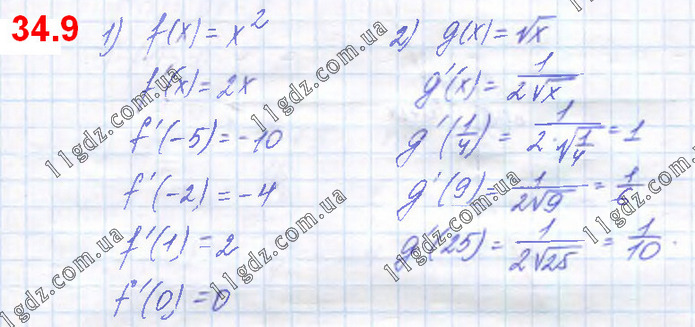 34.9
1) f(x) = x²
f'(x) = 2x
f'(-5) = -10
f'(-2) = -4
f'(1) = 2
f'(0) = 0
2) g(x) = √x
g'(x) = 1/(2√x)
g'(1/4) = 1/(2·√(1/4)) = 1
g'(9) = 1/(2√9) = 1/6
g'(25) = 1/(2√25) = 1/10.
11gdz.com.ua
11gdz.com.ua
11gdz.com.ua
11gdz.com.ua
11gdz.com.ua
11gdz.com.ua
11gdz.com.ua
11gdz.com.ua